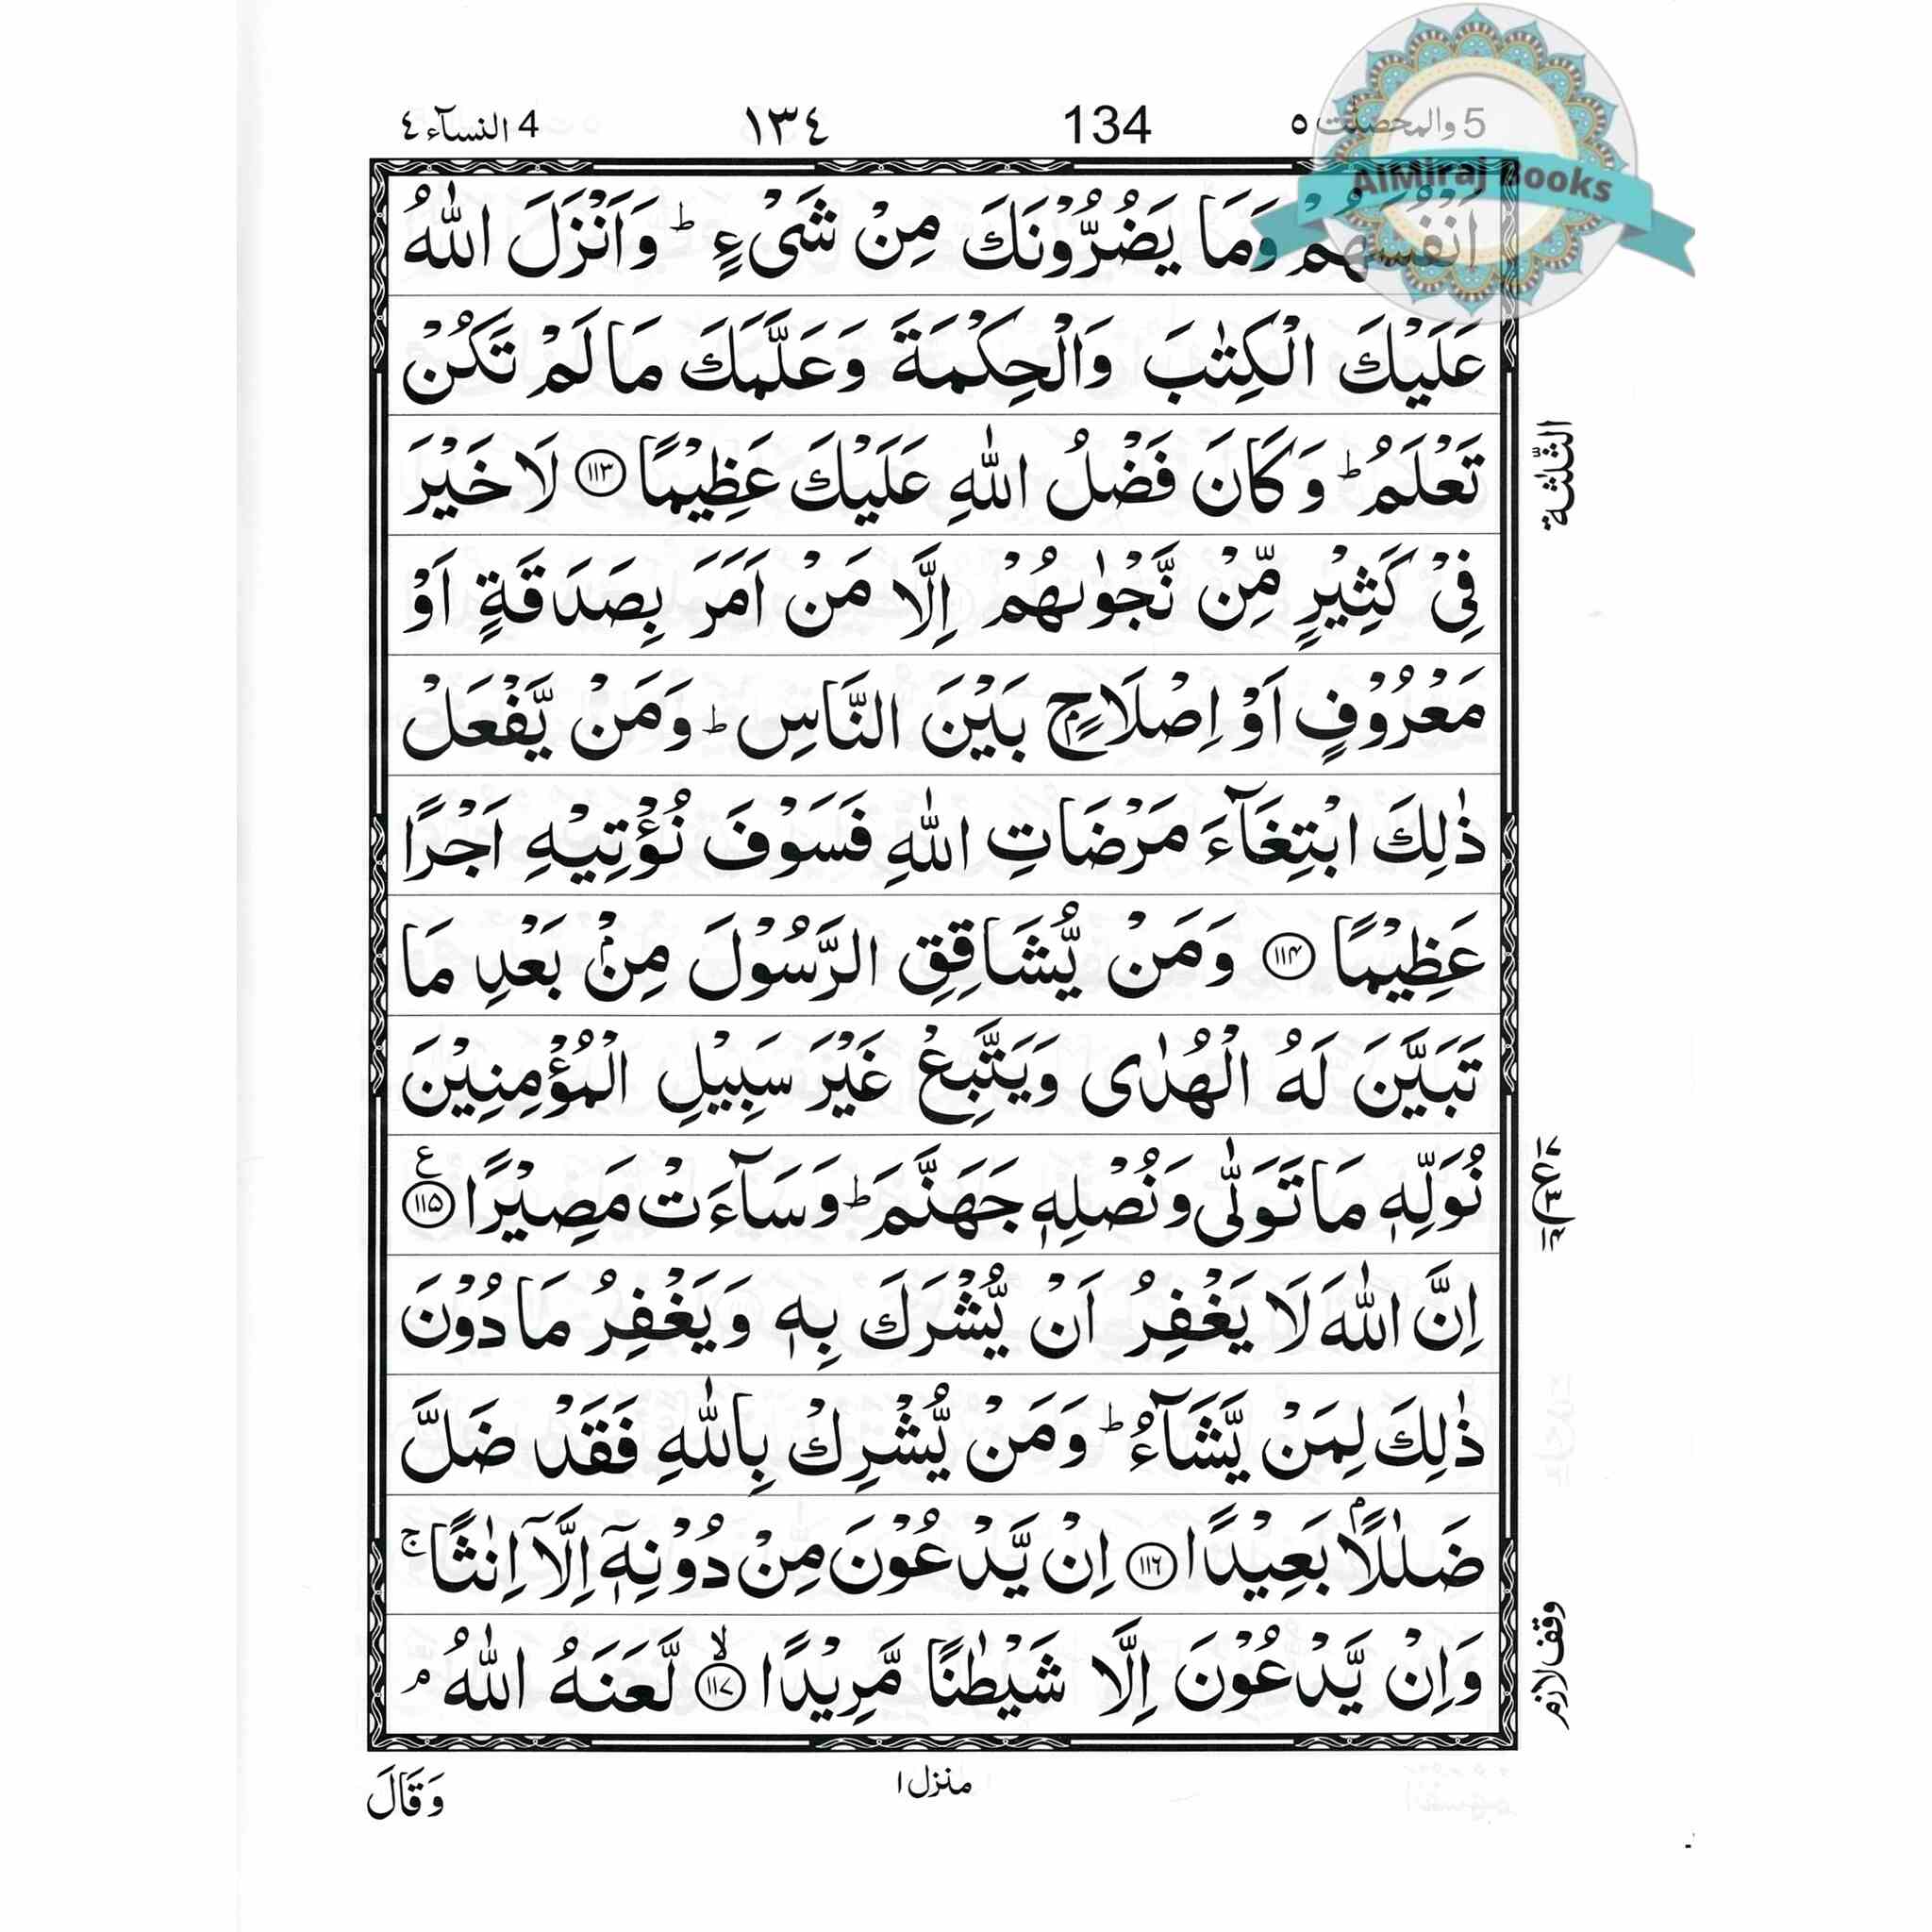 5 والمحصنت ٥ 134 ١٣٤ 4 النسآء ٤
AlMiraj Books
اَنْفُسَهُمْ وَمَا يَضُرُّوْنَكَ مِنْ شَیْءٍ ؕ وَاَنْزَلَ اللّٰهُ
عَلَيْكَ الْكِتٰبَ وَالْحِكْمَةَ وَعَلَّمَكَ مَا لَمْ تَكُنْ
تَعْلَمُ ؕ وَكَانَ فَضْلُ اللّٰهِ عَلَيْكَ عَظِيْمًا ﴿۱۱۳﴾ لَا خَيْرَ
الثلثة
فِیْ كَثِيْرٍ مِّنْ نَّجْوٰىهُمْ اِلَّا مَنْ اَمَرَ بِصَدَقَةٍ اَوْ
مَعْرُوْفٍ اَوْ اِصْلَاحٍۭ بَيْنَ النَّاسِ ؕ وَمَنْ يَّفْعَلْ
ذٰلِكَ ابْتِغَآءَ مَرْضَاتِ اللّٰهِ فَسَوْفَ نُؤْتِيْهِ اَجْرًا
عَظِيْمًا ﴿۱۱۴﴾ وَمَنْ يُّشَاقِقِ الرَّسُوْلَ مِنْۢ بَعْدِ مَا
تَبَيَّنَ لَهُ الْهُدٰى وَيَتَّبِعْ غَيْرَ سَبِيْلِ الْمُؤْمِنِيْنَ
نُوَلِّهٖ مَا تَوَلّٰى وَنُصْلِهٖ جَهَنَّمَ ؕ وَسَآءَتْ مَصِيْرًا ﴿۱۱۵﴾ ع
اِنَّ اللّٰهَ لَا يَغْفِرُ اَنْ يُّشْرَكَ بِهٖ وَيَغْفِرُ مَا دُوْنَ
ذٰلِكَ لِمَنْ يَّشَآءُ ؕ وَمَنْ يُّشْرِكْ بِاللّٰهِ فَقَدْ ضَلَّ
ضَلٰلًاۢ بَعِيْدًا ﴿۱۱۶﴾ اِنْ يَّدْعُوْنَ مِنْ دُوْنِهٖۤ اِلَّاۤ اِنٰثًا ۚ
وَاِنْ يَّدْعُوْنَ اِلَّا شَيْطٰنًا مَّرِيْدًا ﴿۱۱۷﴾ ۙ لَّعَنَهُ اللّٰهُ ۘ
وقف لازم
منزل ۱
وَقَالَ